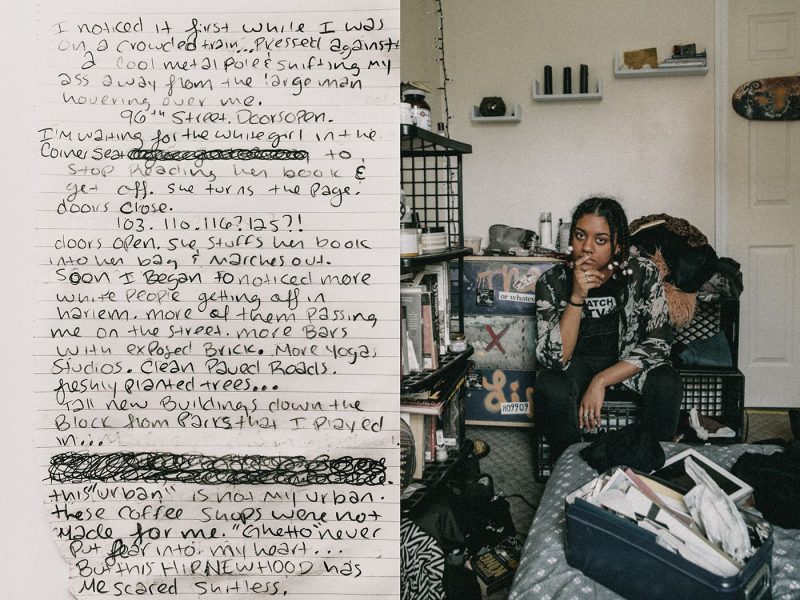 I noticed it first while I was
on a crowded train... Pressed against
a cool metal pole & shifting my
ass away from the large man
hovering over me.
96th Street. Doors open.
I'm waiting for the white girl in the
corner seat to
stop reading her book &
get off. She turns the page.
doors close.
103. 110. 116? 125?!
doors open. She stuffs her book
into her bag & marches out.
Soon I Began to noticed more
white people getting off in
harlem. more of them passing
me on the street. more Bars
with exposed Brick. More yoga
Studios. Clean Paved Roads.
freshly planted trees...
Tall new Buildings down the
Block from Parks that I played
in...
this "urban" is not my urban.
these coffee shops were not
made for me. "Ghetto" never
put fear into my heart...
But this HIP NEW HOOD has
Me scared shitless.
or whatev
X
H09909
ATCH
TV